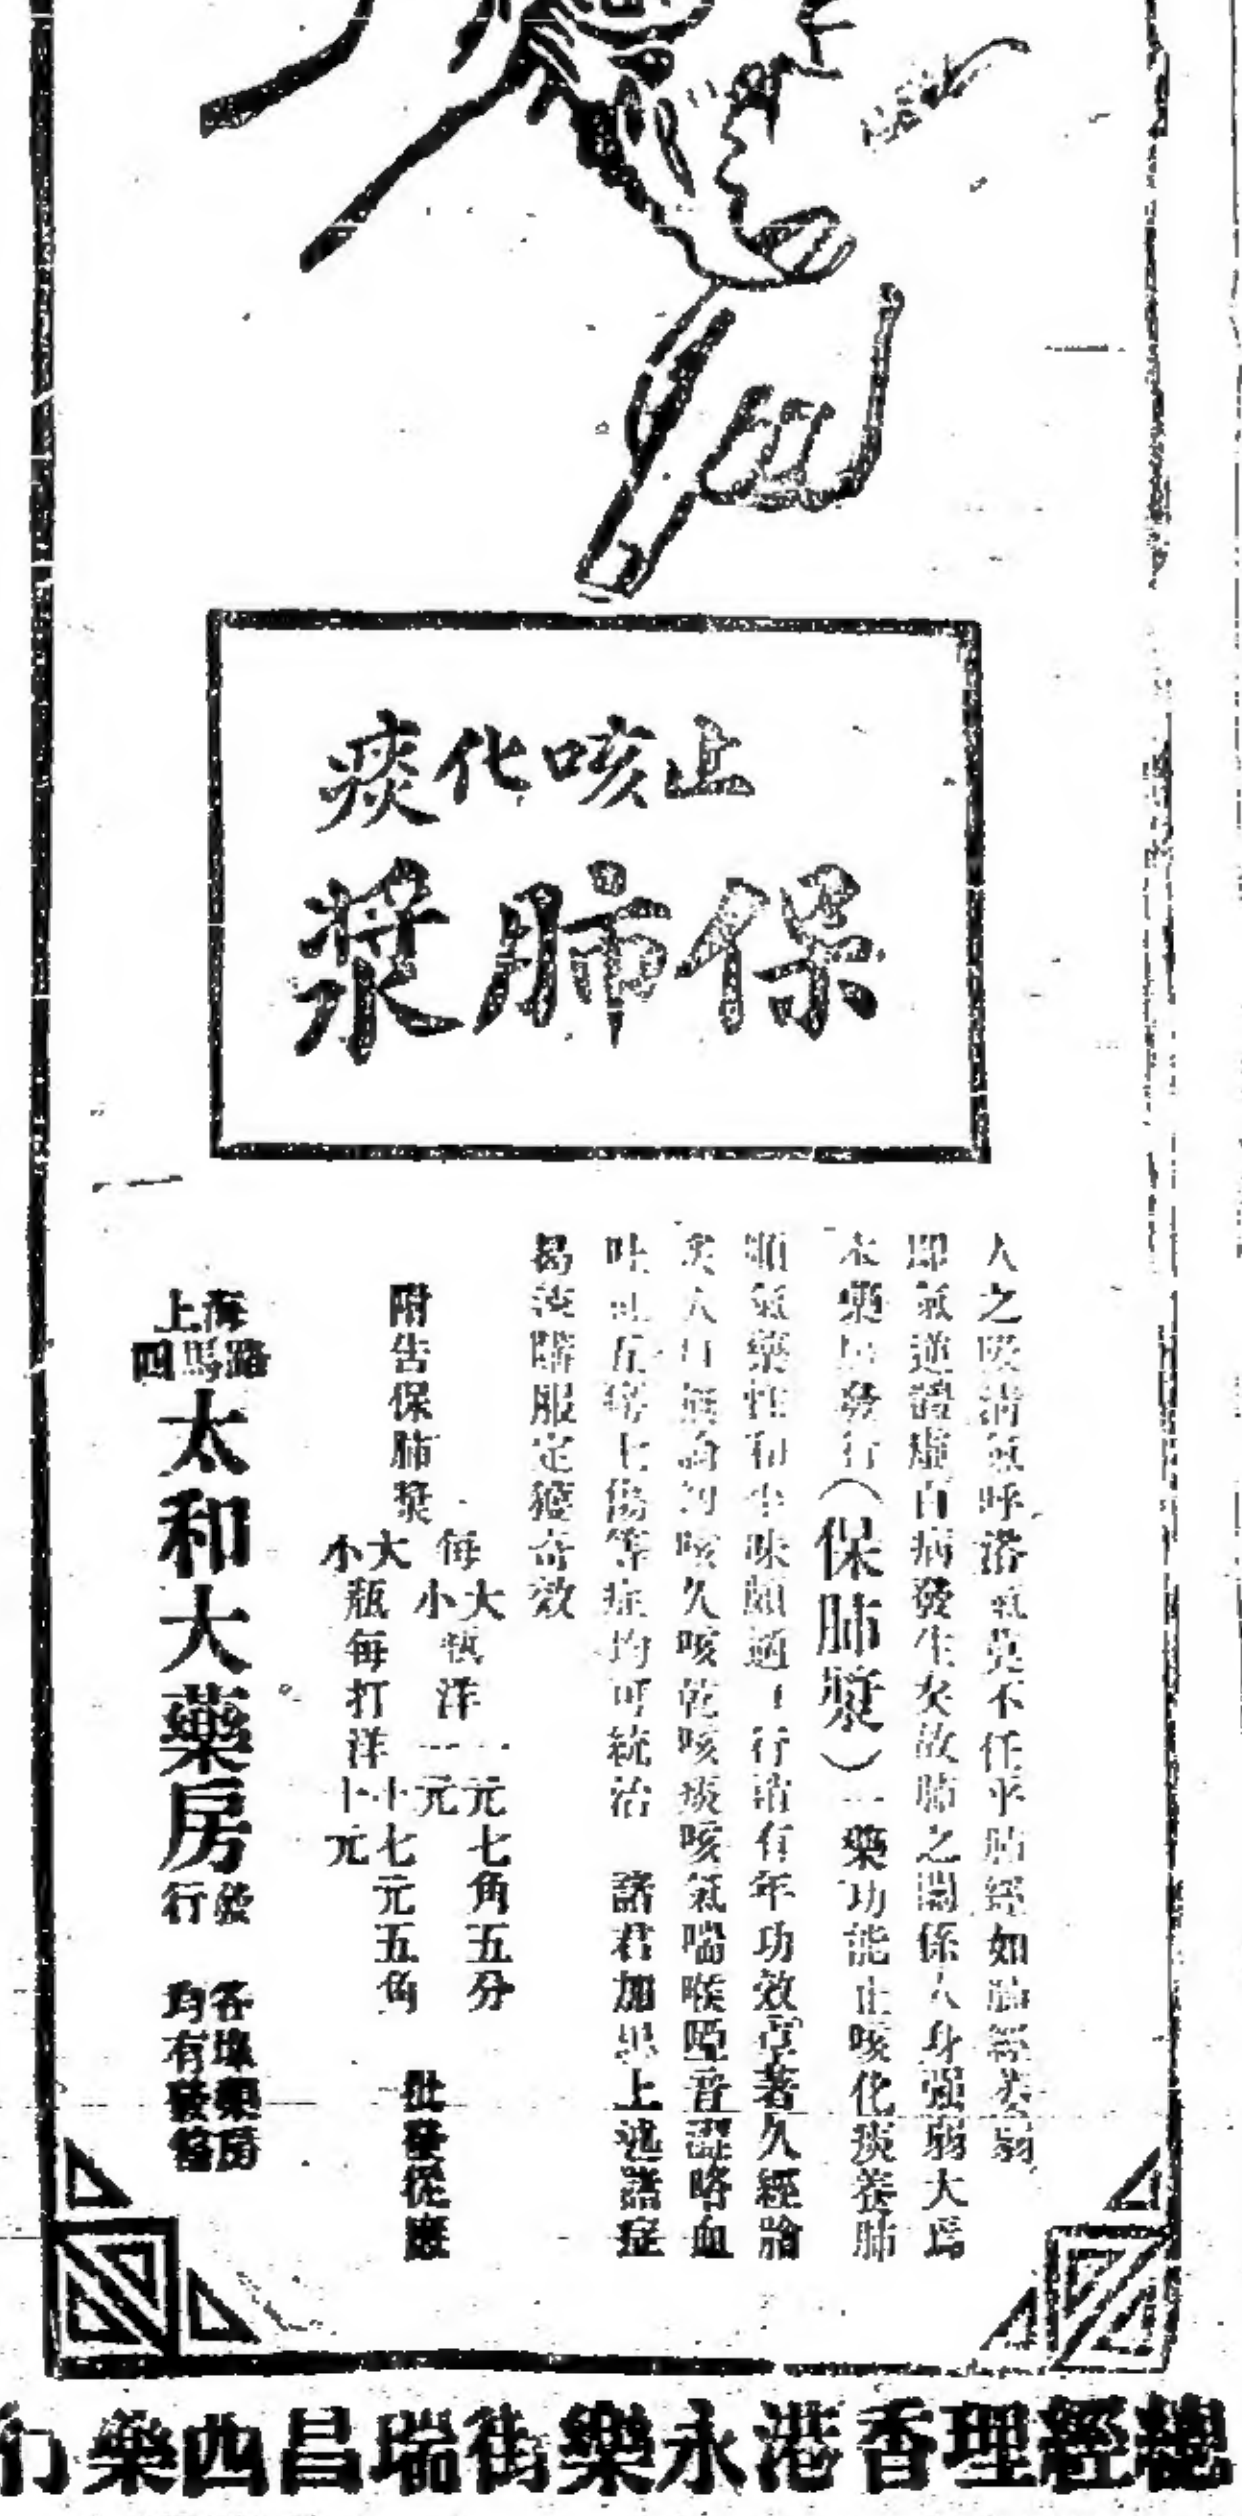 止咳化痰
保肺漿
人之吸清氣呼濁氣莫不任乎肺經如肺經衰弱
即氣逆體虛百病發生矣故肺之關係人身强弱大爲
本藥房發行(保肺漿)一藥功能止咳化痰養肺
順氣藥性和平味頗適口行銷有年功效卓著久經驗
久咳乾咳痰咳氣喘喉啞音澀咯血
吐血五癆七傷等症均可統治 諸君加患上述諸症
服定獲奇效
附告保肺漿
每大瓶洋一元七角五分
小 一元
大瓶每打洋十七元五角
小 十元
批發從廉
上海
四馬路
太和大藥房
發行
各埠藥房
均有發售
總經理香港永樂街瑞昌西藥行